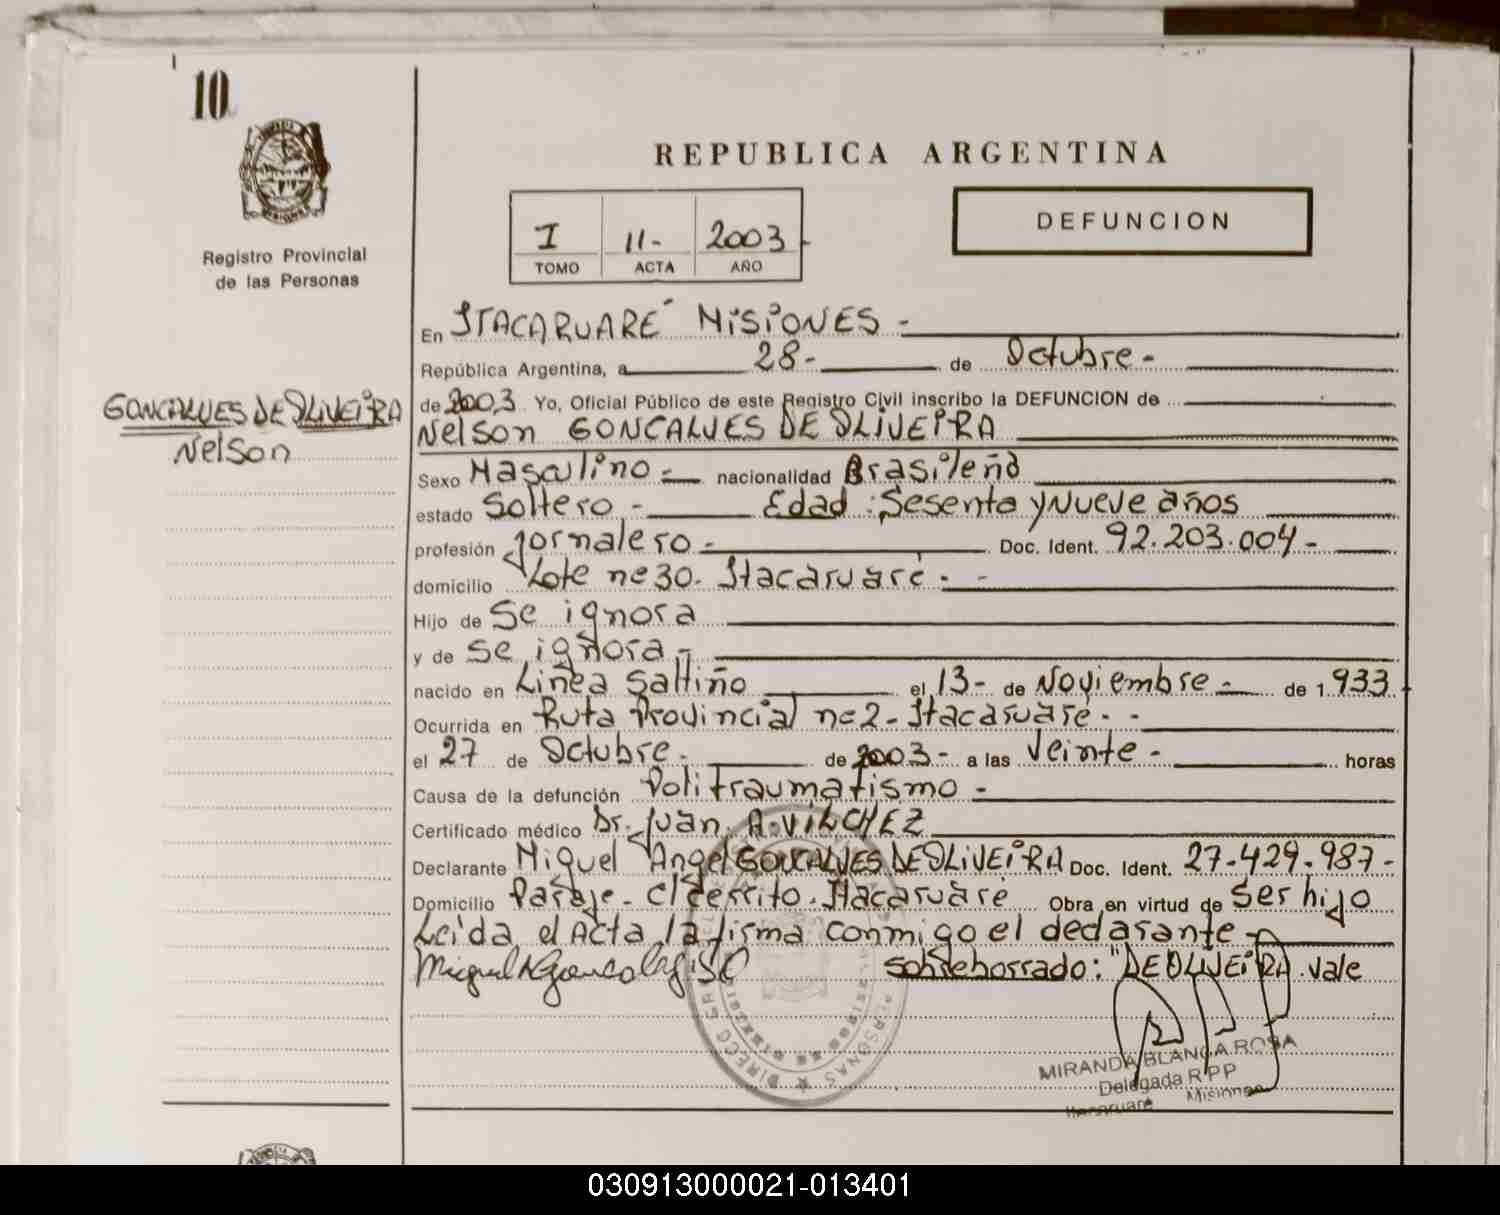 10
REPUBLICA ARGENTINA
I 11- 2003
TOMO ACTA AÑO
DEFUNCION
Registro Provincial
de las Personas
GONCALVES DE OLIVEIRA
Nelson
En ITACARUARE MISIONES -
República Argentina, a 28- de Octubre -
de 2003 Yo, Oficial Público de este Registro Civil inscribo la DEFUNCION de
Nelson GONCALVES DE OLIVEIRA
Sexo Masculino - nacionalidad Brasileño
estado Soltero - Edad : Sesenta y Nueve años
profesión Jornalero - Doc. Ident. 92.203.004 -
domicilio Lote nº 30. Itacaruaré - -
Hijo de Se ignora
y de se ignora -
nacido en Linea Saltiño el 13- de Noviembre - de 1.933
Ocurrida en Ruta Provincial nº 2 - Itacaruaré - -
el 27 de Octubre - de 2003 - a las Veinte - horas
Causa de la defunción Politraumatismo -
Certificado médico Dr. Juan. A. VILCHEZ
Declarante Miguel Angel GONCALVES DE OLIVEIRA Doc. Ident. 27-429.987-
Domicilio Paraje - Cl Cerrito. Itacaruaré Obra en virtud de Ser hijo
Leida el Acta la firma conmigo el declarante -
Sobreborrado: "DE OLIVEIRA. vale
MIRANDA BLANCA ROSA
Delegada R P P
Itacaruaré Misiones
030913000021-013401